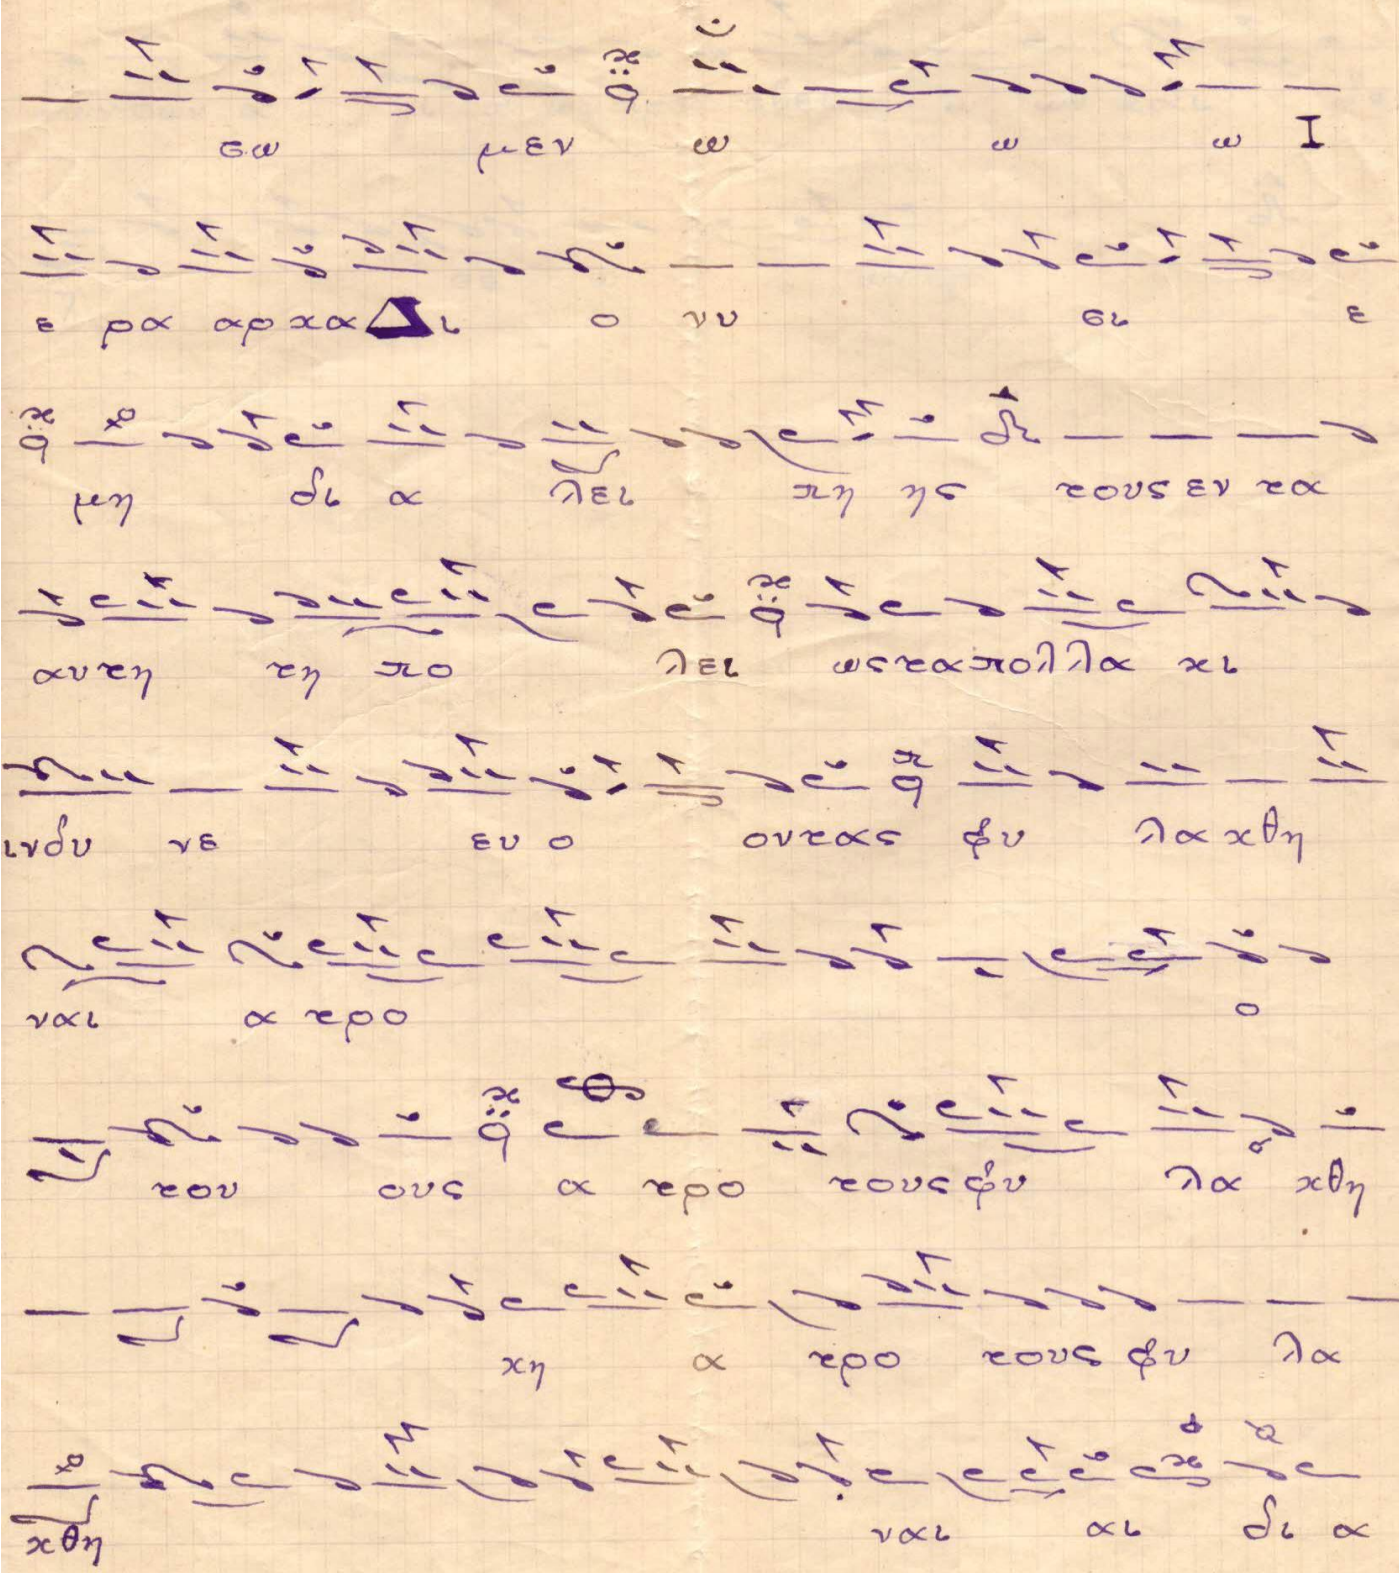 σω μεν ω ω ω Ι
ε ρα αρ χα Δι ο νυ σι ε
μη δι α λει πη ης τους εν τα
αυ τη τη πο λει ως τα πολ λα κι
ινδυ νε ευ ο ουτας φυ λα χθη
ναι α τρο ο
του ους α τρο τους φυ λα χθη
χη α τρο τους φυ λα
χθη ναι αι δι α